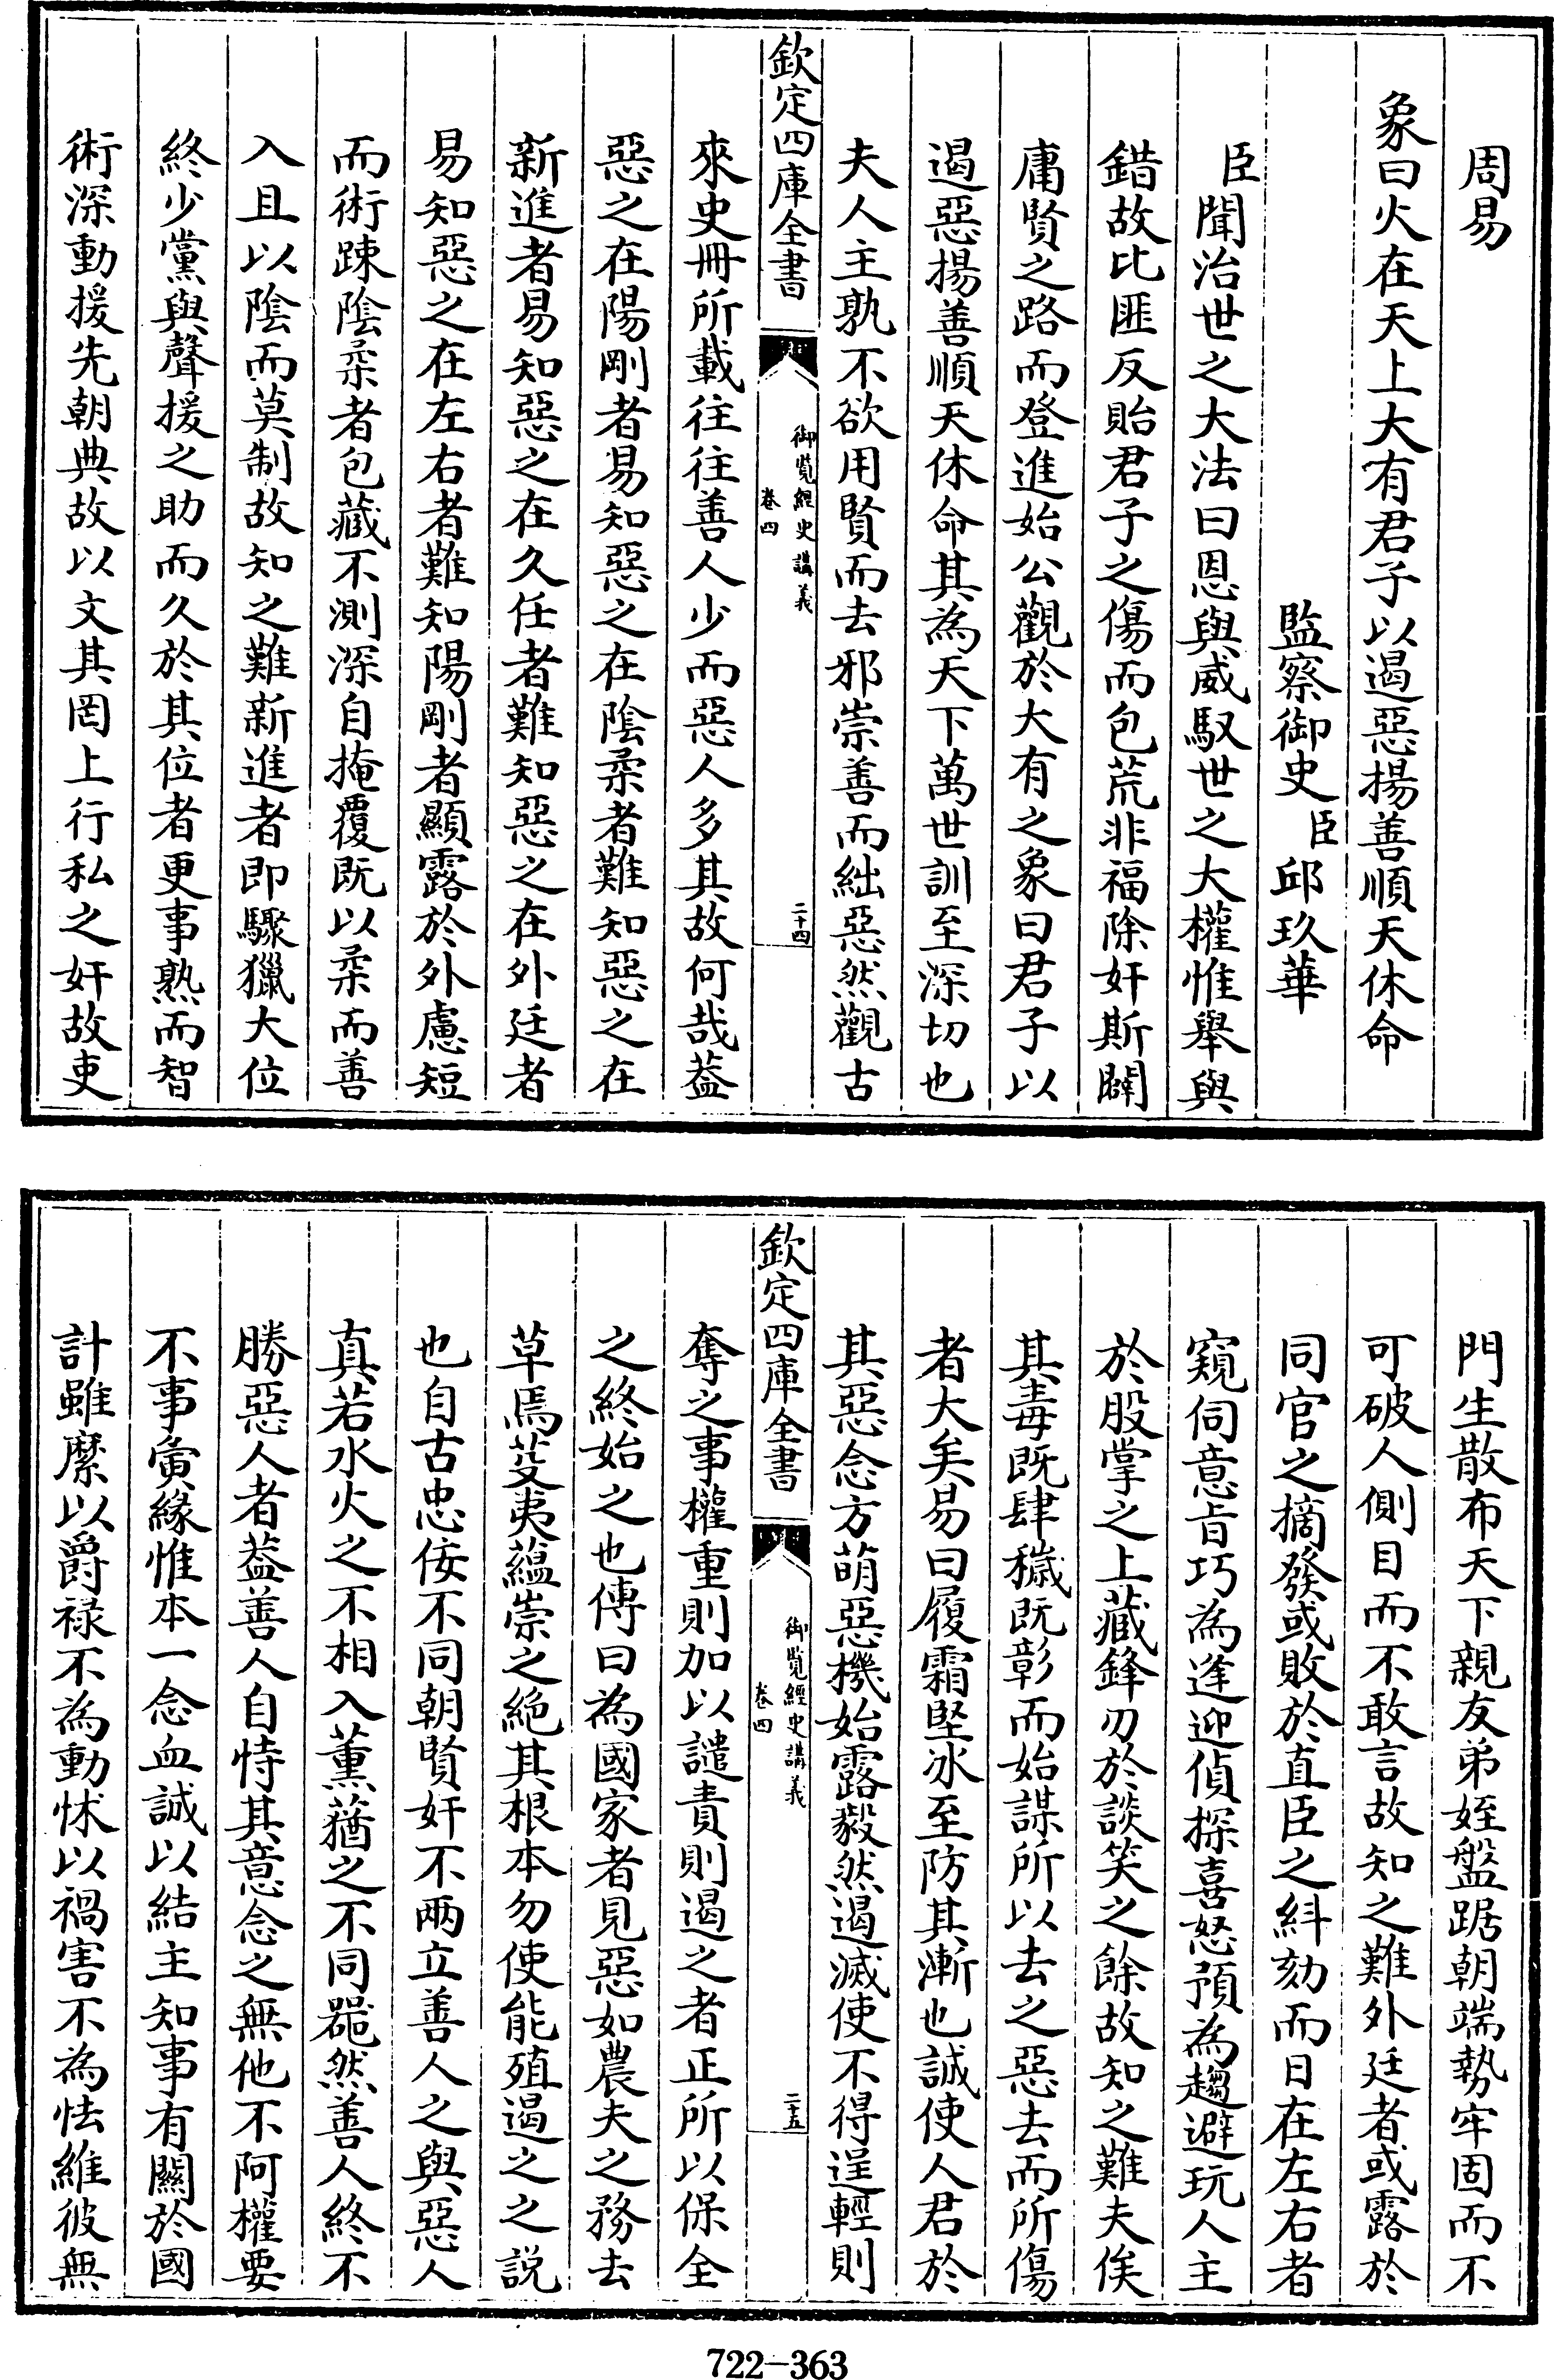 周易
象曰火在天上大有君子以遏惡揚善順天休命
監察御史臣邱玖華
臣聞治世之大法曰恩與威馭世之大權惟舉與
錯故比匪反貽君子之傷而包荒非福除奸斯闢
庸賢之路而登進始公觀於大有之象曰君子以
遏惡揚善順天休命其為天下萬世訓至深切也
夫人主孰不欲用賢而去邪崇善而絀惡然觀古
欽定四庫全書
御覽經史講義
卷四
二十四
來史冊所載往往善人少而惡人多其故何哉葢
惡之在陽剛者易知惡之在陰柔者難知惡之在
新進者易知惡之在久任者難知惡之在外廷者
易知惡之在左右者難知陽剛者顯露於外慮短
而術踈陰柔者包藏不測深自掩覆既以柔而善
入且以陰而莫制故知之難新進者即驟獵大位
終少黨與聲援之助而久於其位者更事熟而智
術深動援先朝典故以文其罔上行私之奸故吏
門生散布天下親友弟姪盤踞朝端勢牢固而不
可破人側目而不敢言故知之難外廷者或露於
同官之摘發或敗於直臣之糾劾而日在左右者
窺伺意旨巧為逢迎偵探喜怒預為趨避玩人主
於股掌之上藏鋒刃於談笑之餘故知之難夫俟
其毒既肆穢既彰而始謀所以去之惡去而所傷
者大矣易曰履霜堅冰至防其漸也誠使人君於
其惡念方萌惡機始露毅然遏滅使不得逞輕則
欽定四庫全書
御覽經史講義
卷四
二十五
奪之事權重則加以譴責則遏之者正所以保全
之終始之也傳曰為國家者見惡如農夫之務去
草焉芟夷蘊崇之絕其根本勿使能殖遏之之說
也自古忠佞不同朝賢奸不兩立善人之與惡人
真若水火之不相入薰蕕之不同器然善人終不
勝惡人者葢善人自恃其意念之無他不阿權要
不事夤緣惟本一念血誠以結主知事有關於國
計雖縻以爵祿不為動怵以禍害不為怯維彼無
722-363